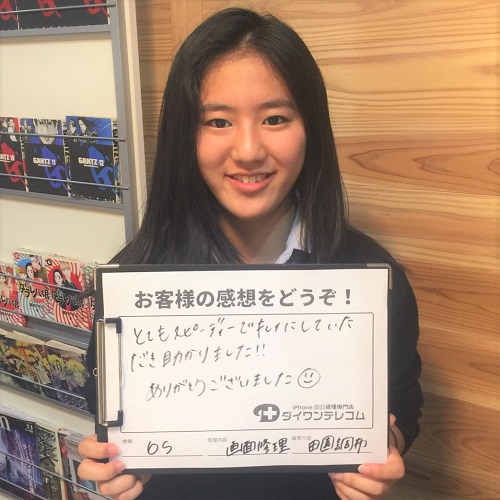 GANTZ 12
GANTZ 11
お客様の感想をどうぞ!
とてもスピーディーでキレイにしていた
だき助かりました!!
ありがとうございました
iPhone即日修理専門店
ダイワンテレコム
機種 6S 修理内容 画面修理 最寄り駅 田園調布